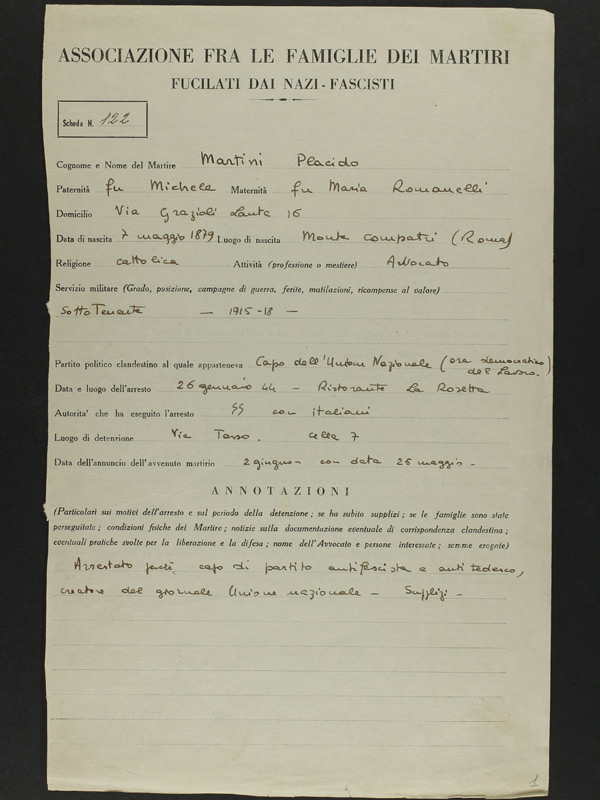 ASSOCIAZIONE FRA LE FAMIGLIE DEI MARTIRI
FUCILATI DAI NAZI-FASCISTI
Scheda N. 122
Cognome e Nome del Martire Martini Placido
Paternità fu Michele Maternità fu Maria Romanelli
Domicilio Via Grazioli Lante 16
Data di nascita 7 maggio 1879 Luogo di nascita Monte compatri (Roma)
Religione cattolica Attività (professione o mestiere) Avvocato
Servizio militare (Grado, posizione, campagne di guerra, ferite, mutilazioni, ricompense al valore)
Sotto Tenente — 1915-18 —
Partito politico clandestino al quale apparteneva Capo dell'Unione Nazionale (ora democratico del Lavoro.)
Data e luogo dell'arresto 26 gennaio 44 — Ristorante La Rosetta
Autorita' che ha eseguito l'arresto SS con italiani
Luogo di detenzione Via Tasso. cella 7
Data dell'annuncio dell'avvenuto martirio 2 giugno con data 25 maggio -
ANNOTAZIONI
(Particolari sui motivi dell'arresto e sul periodo della detenzione; se ha subito supplizi; se le famiglie sono state
perseguitate; condizioni fisiche del Martire; notizie sulla documentazione eventuale di corrispondenza clandestina;
eventuali pratiche svolte per la liberazione e la difesa; nome dell'Avvocato e persone interessate; somme erogate)
Arrestato perché capo di partito antifascista e anti tedesco,
creatore del giornale Unione nazionale — Supplizi -
1